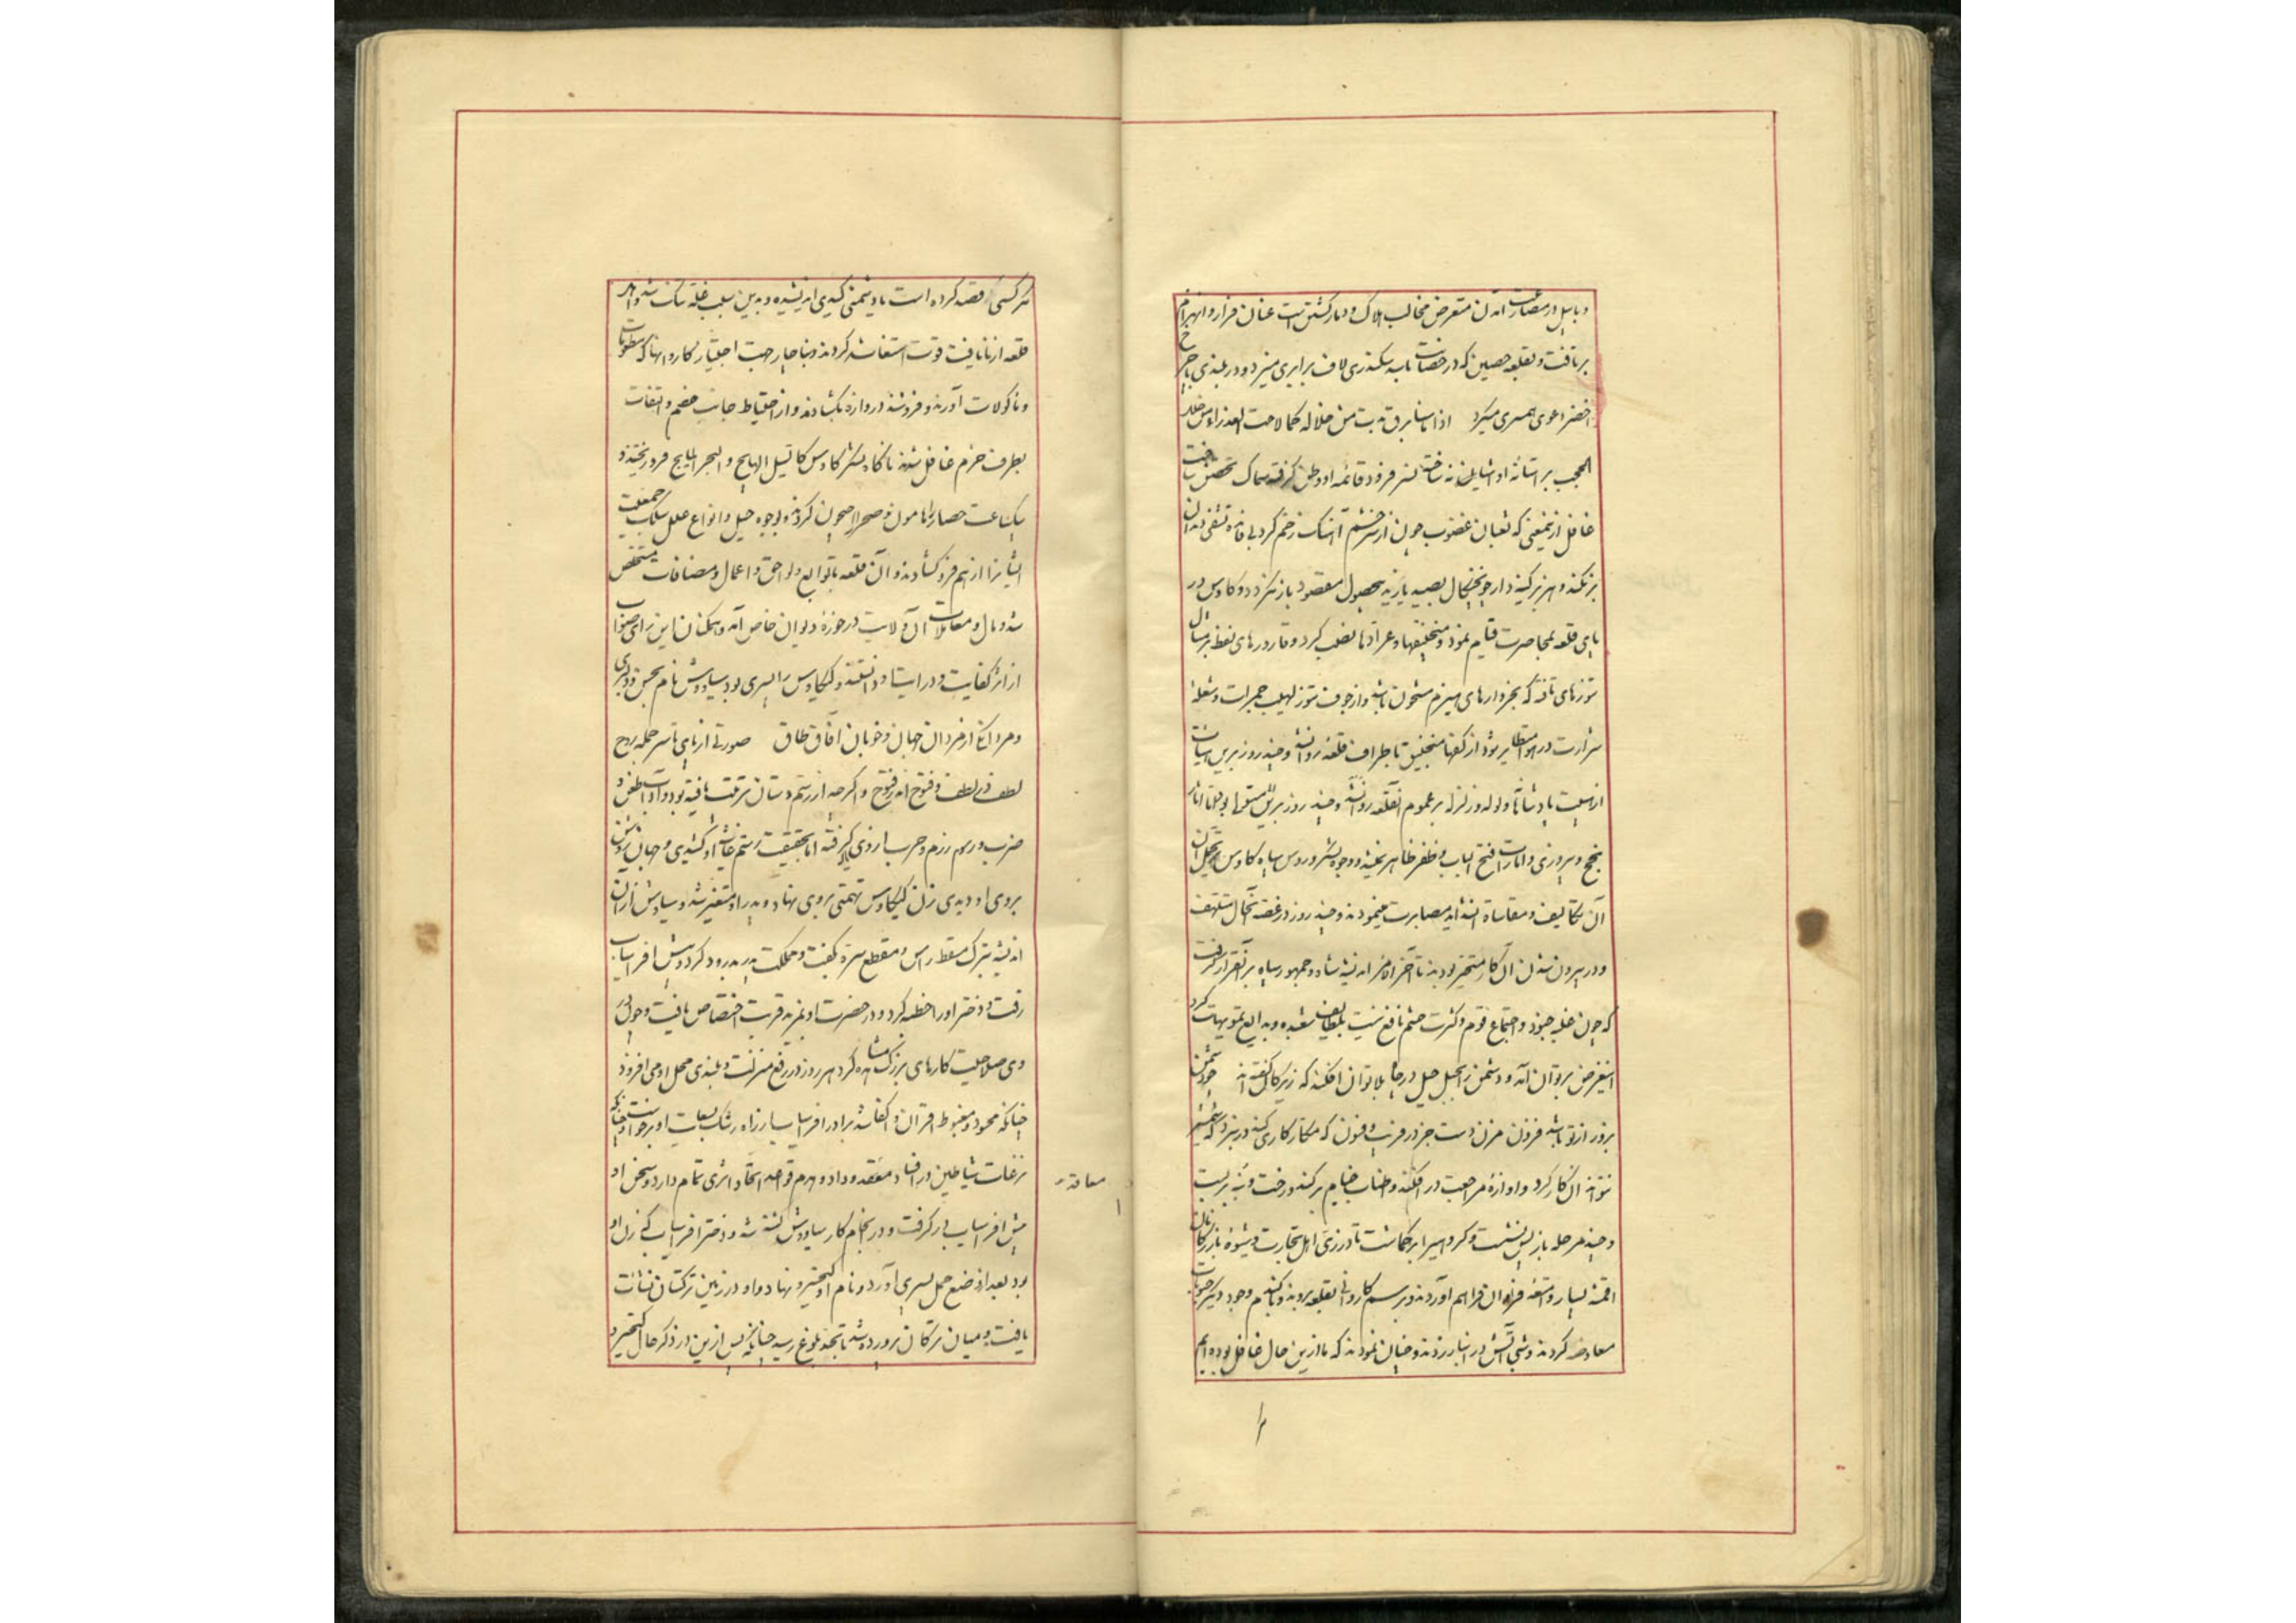 و بابیل در مضارب آمدن متعرض مخالب هلاک و دمار گشتن است عنان فرار و انهزام
برتافت و بقلعه حصین که در حصانت با سد سکندری لاف برابری میزد و در بلندی با چرخ
اخضر دعوی همسری میکرد اذا ما سنا برق بدت من خلاله کما لاحت العذراء من خلل
الحجب بر آستانه او
غافل از نیمعنی که ثعبان غضوب چون از سر خشم آهنگ زخم کرد بی فایده تشفی دندان
بر نکند و هزبر کینه دار چون چنگال بصید یازید بی حصول مقصود باز نگردد و کاوس در
پای قلعه بمحاصرت قیام نمود و منجنیقها و عرادها نصب کرد و قارورهای نفط بر مثال
تنورهای تافته که بخروارهای هیزم مشحون باشد و از جوف تنور لهیب جمرات و شعله
شرارت در هوا متطایر بود از کفهای منجنیق باطراف قلعه روانه شد و چند روز برین سیاست
از هیبت پادشاه ولوله و زلزله بر عموم آن قلعه
نجح و پیروزی و امارات فتح الباب و ظفر ظاهر نمیشد و وجوه لشکر و روس سپاه کاوس بر تحمل آن
آن تکالیف و مقاساة آن شداید مصابرت مینمودند و چند روز در غصه آن حال متلهف
و در بیرون شدن آن کار متحیر بودند تا آخر الامر اندیشه شاه و جمهور سپاه بر آن قرار گرفت
که چون غلبه جنود و اجتماع قوم و کثرت حشم نافع نیست بلطایف شعبده و بدایع تمویهات کرد
این غرض بر توان آمد و دشمن را بحبل حیل در چاه بلا توان افکند که زیرکان گفته اند چو دشمن
بزور از تو باشد فزون مزن دست جز در فریب و فسون که مکار کاری کند در نبرد که شمشیر
نتواند آن کار کرد و آوازه مراجعت در افکند و طناب خیام بر کند و رخت و بنه بربست
و چند مرحله باز پس نشست و گروهی را برگماشت تا در زی اهل تجارت و شیوه بازرگانان
اقمشه بسیار و امتعه فراوان فراهم آوردند و برسم کاروانی بقلعه بردند و بگندم و جو و دیگر حبوبات
معاوضه کردند و شبی آتش در انبار زدند و چنان نمودند که ما ازین حال غافل بوده ایم
هر کسی قصد کرده است با دشمنی کیدی اندیشیده و بدین سبب غله تنک شد و اهل
قلعه از نایافت قوت استغاثه کردند و بناچار جهت اجتیاز کاروانها که مطعومات
و ماکولات آورند و فروشند دروازه بگشادند و از احتیاط جانب خصم و التفات
بطرف حزم غافل شدند ناگاه لشکر کاوس کالسیل الهایج و البحر المایج فرو ریختند و
بیکساعت حصار را هامون و صحرا جیحون کردند و بوجوه حیل و انواع علل سلک جمعیت
ایشان را از هم فرو گشادند و آن قلعه با توابع و لواحق و اعمال و مضافات مستخلص
شد و مال و معاملات آن ولایت در حوزه دیوان خاص آمد و همگنان این رای صواب
از اثر کفایت و درایت او دانستند و کیکاوس را پسری بود سیاوش نام بحسن و دلبری
و مردانگی از مردان جهان و خوبان آفاق طاق صورتی از پای تا سر جمله روح
لطف فی لطف و فتوح اندر فتوح و اگر چه از رستم دستان تربیت یافته بود و آداب طعن و
ضرب و رسوم رزم و حرب از وی فرا گرفته اما بحقیقت رستم غاشیه او کشیدی و جهان روشن
بروی او دیدی زن کیکاوس تهمتی بر وی نهاد و پدر برو متغیر شد و سیاوش از آن
اندیشه بترک مسقط راس و مقطع سره بگفت و مملکت پدر بدرود کرد و پیش افراسیاب
رفت و دختر او را خطبه کرد و در حضرت او بمزید قربت اختصاص یافت و چون
وی صلاحیت کارهای بزرگ مشاهده کرد هر روز در رفع منزلت و بلندی محل او می افزود
چنانکه محسود و مغبوط اقران و اکفا شد برادر افراسیاب را از راه رشک سعایت او برخواست چنانکه
نزغات شیاطین در افساد معقد وداد و هدم قواعد اتحاد اثری تمام دارد و سخن او
پیش افراسیاب در گرفت و در انجام کار سیاوش کشته شد و دختر افراسیاب که زن او
بود بعد از وضع حمل پسری آورد و نام او کیخسرو نهاد و او در زمین ترکستان نشأت
یافت و میان ترکان پرورده شد تا بحد بلوغ رسید چنانکه پس ازین در ذکر حال کیخسرو